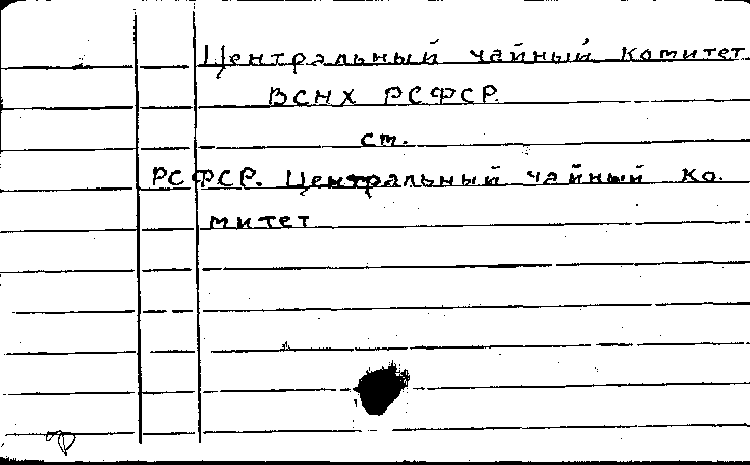 Центральный чайный комитет
ВСНХ РСФСР.
см.
РСФСР. Центральный чайный ко-
митет